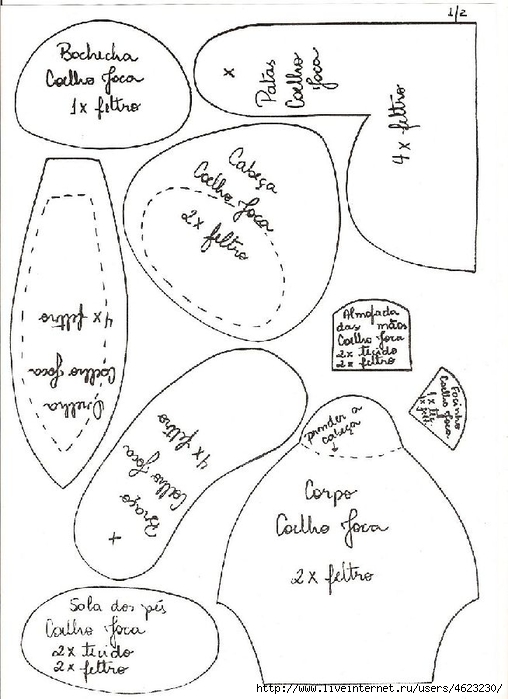 1/2
Bochecha
Coelho Joca
1x feltro
x
Patas
Coelho
Joca
4x feltro
Cabeça
Coelho Joca
2x feltro
Orelha
Coelho Joca
4x feltro
Almofada
das mãos
Coelho Joca
2x tecido
2x feltro
Focinho
Coelho Joca
prender a
cabeça
Braço
Coelho Joca
4x feltro
+
Corpo
Coelho Joca
2x feltro
Sola dos pés
Coelho Joca
2x tecido
2x feltro
http://www.liveinternet.ru/users/4623230/